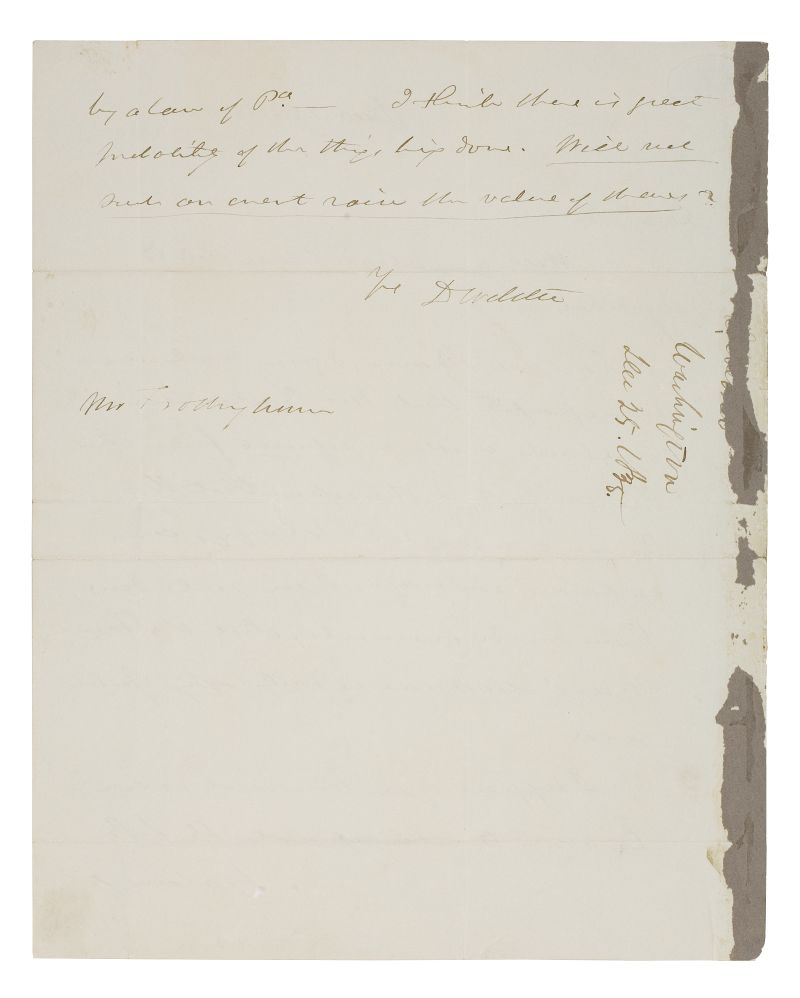 by a law of Pa. — I think there is great
probability of the thing being done. Will not
such an event raise the value of shares?
Yrs D Webster
Mr Frothingham
Washington
Dec 25. 1835.